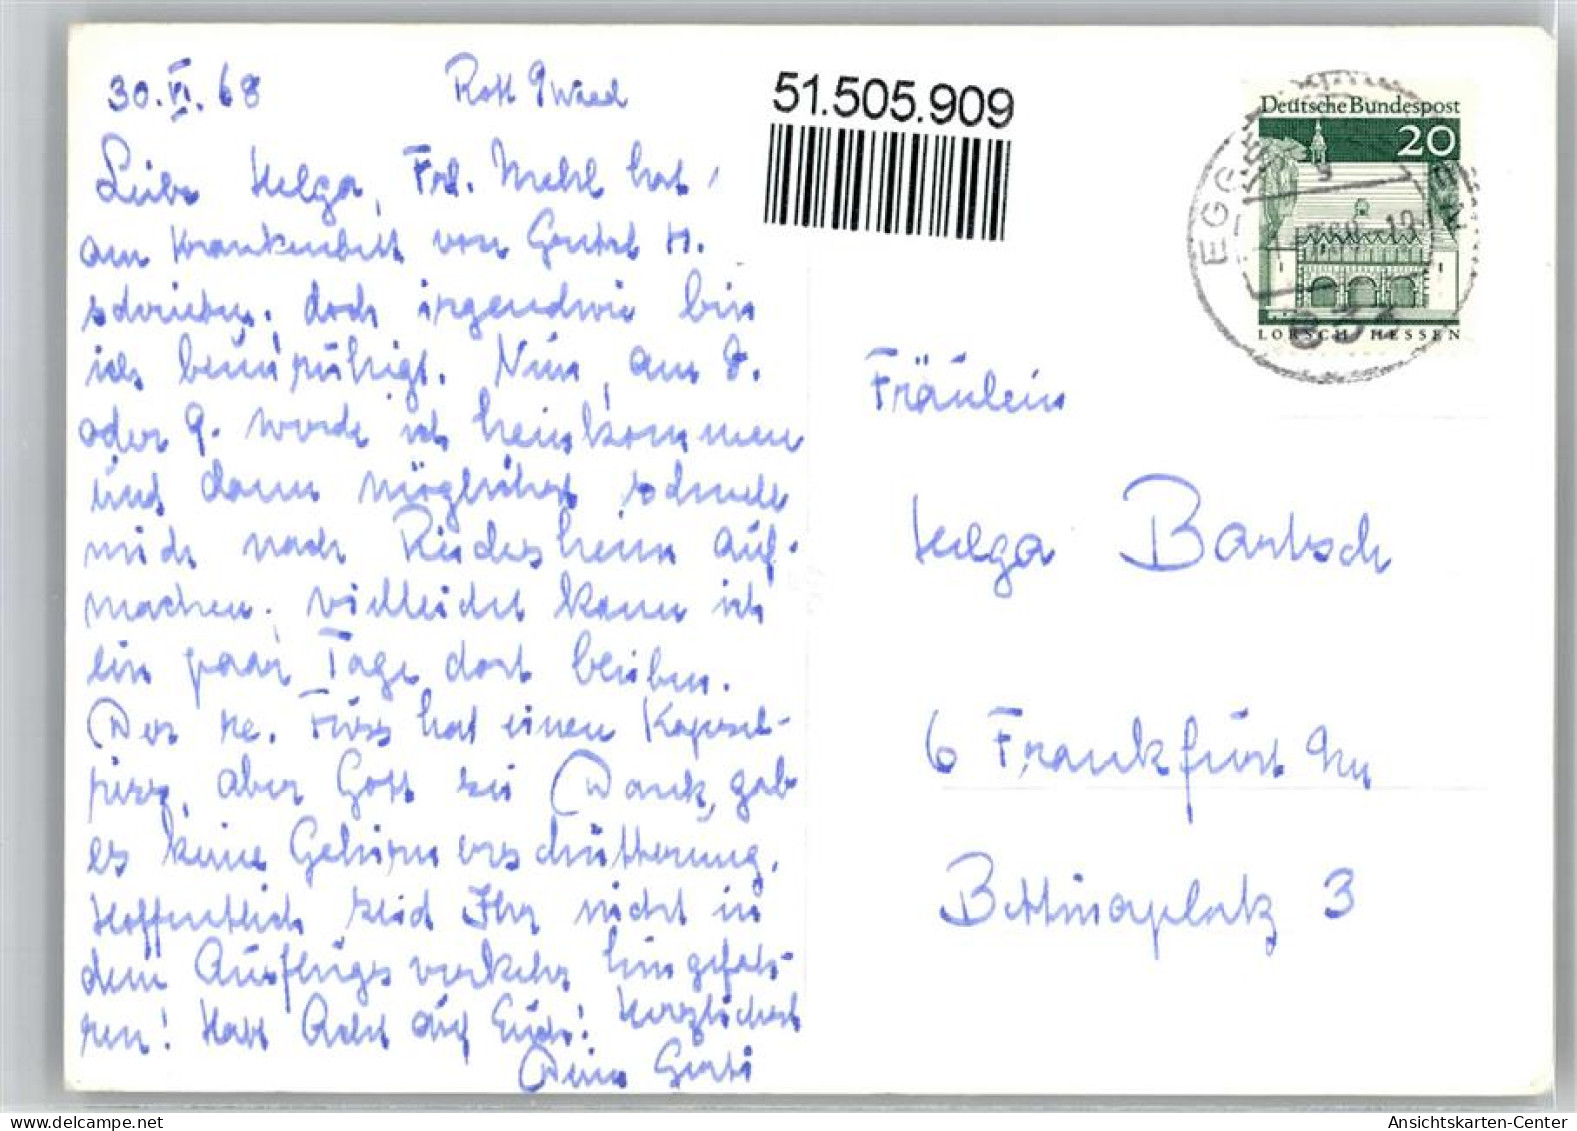 30. VI. 68
51.505.909
Deutsche Bundespost
20
LORSCH / HESSEN
Liebe Helga, Frl. Mehl hat
am Krankenbett von Gretel H.
doch irgendwie bin
ich beunruhigt. Nun, am 8.
oder 9. werde ich heimkommen
und dann möglichst schnell
mich nach Rüdesheim auf-
machen. Vielleicht kann ich
ein paar Tage dort bleiben.
Der re. Fuss hat einen Kapsel-
riss, aber Gott sei Dank, gab
es keine Gehirnerschütterung.
Hoffentlich seid Ihr nicht in
den Ausflugsverkehr hingefah-
ren! Habt Acht auf Euch! Herzlichst
Deine Gerti
Fräulein
Helga Bartsch
6 Frankfurt
Bettinaplatz 3
Ansichtskarten-Center